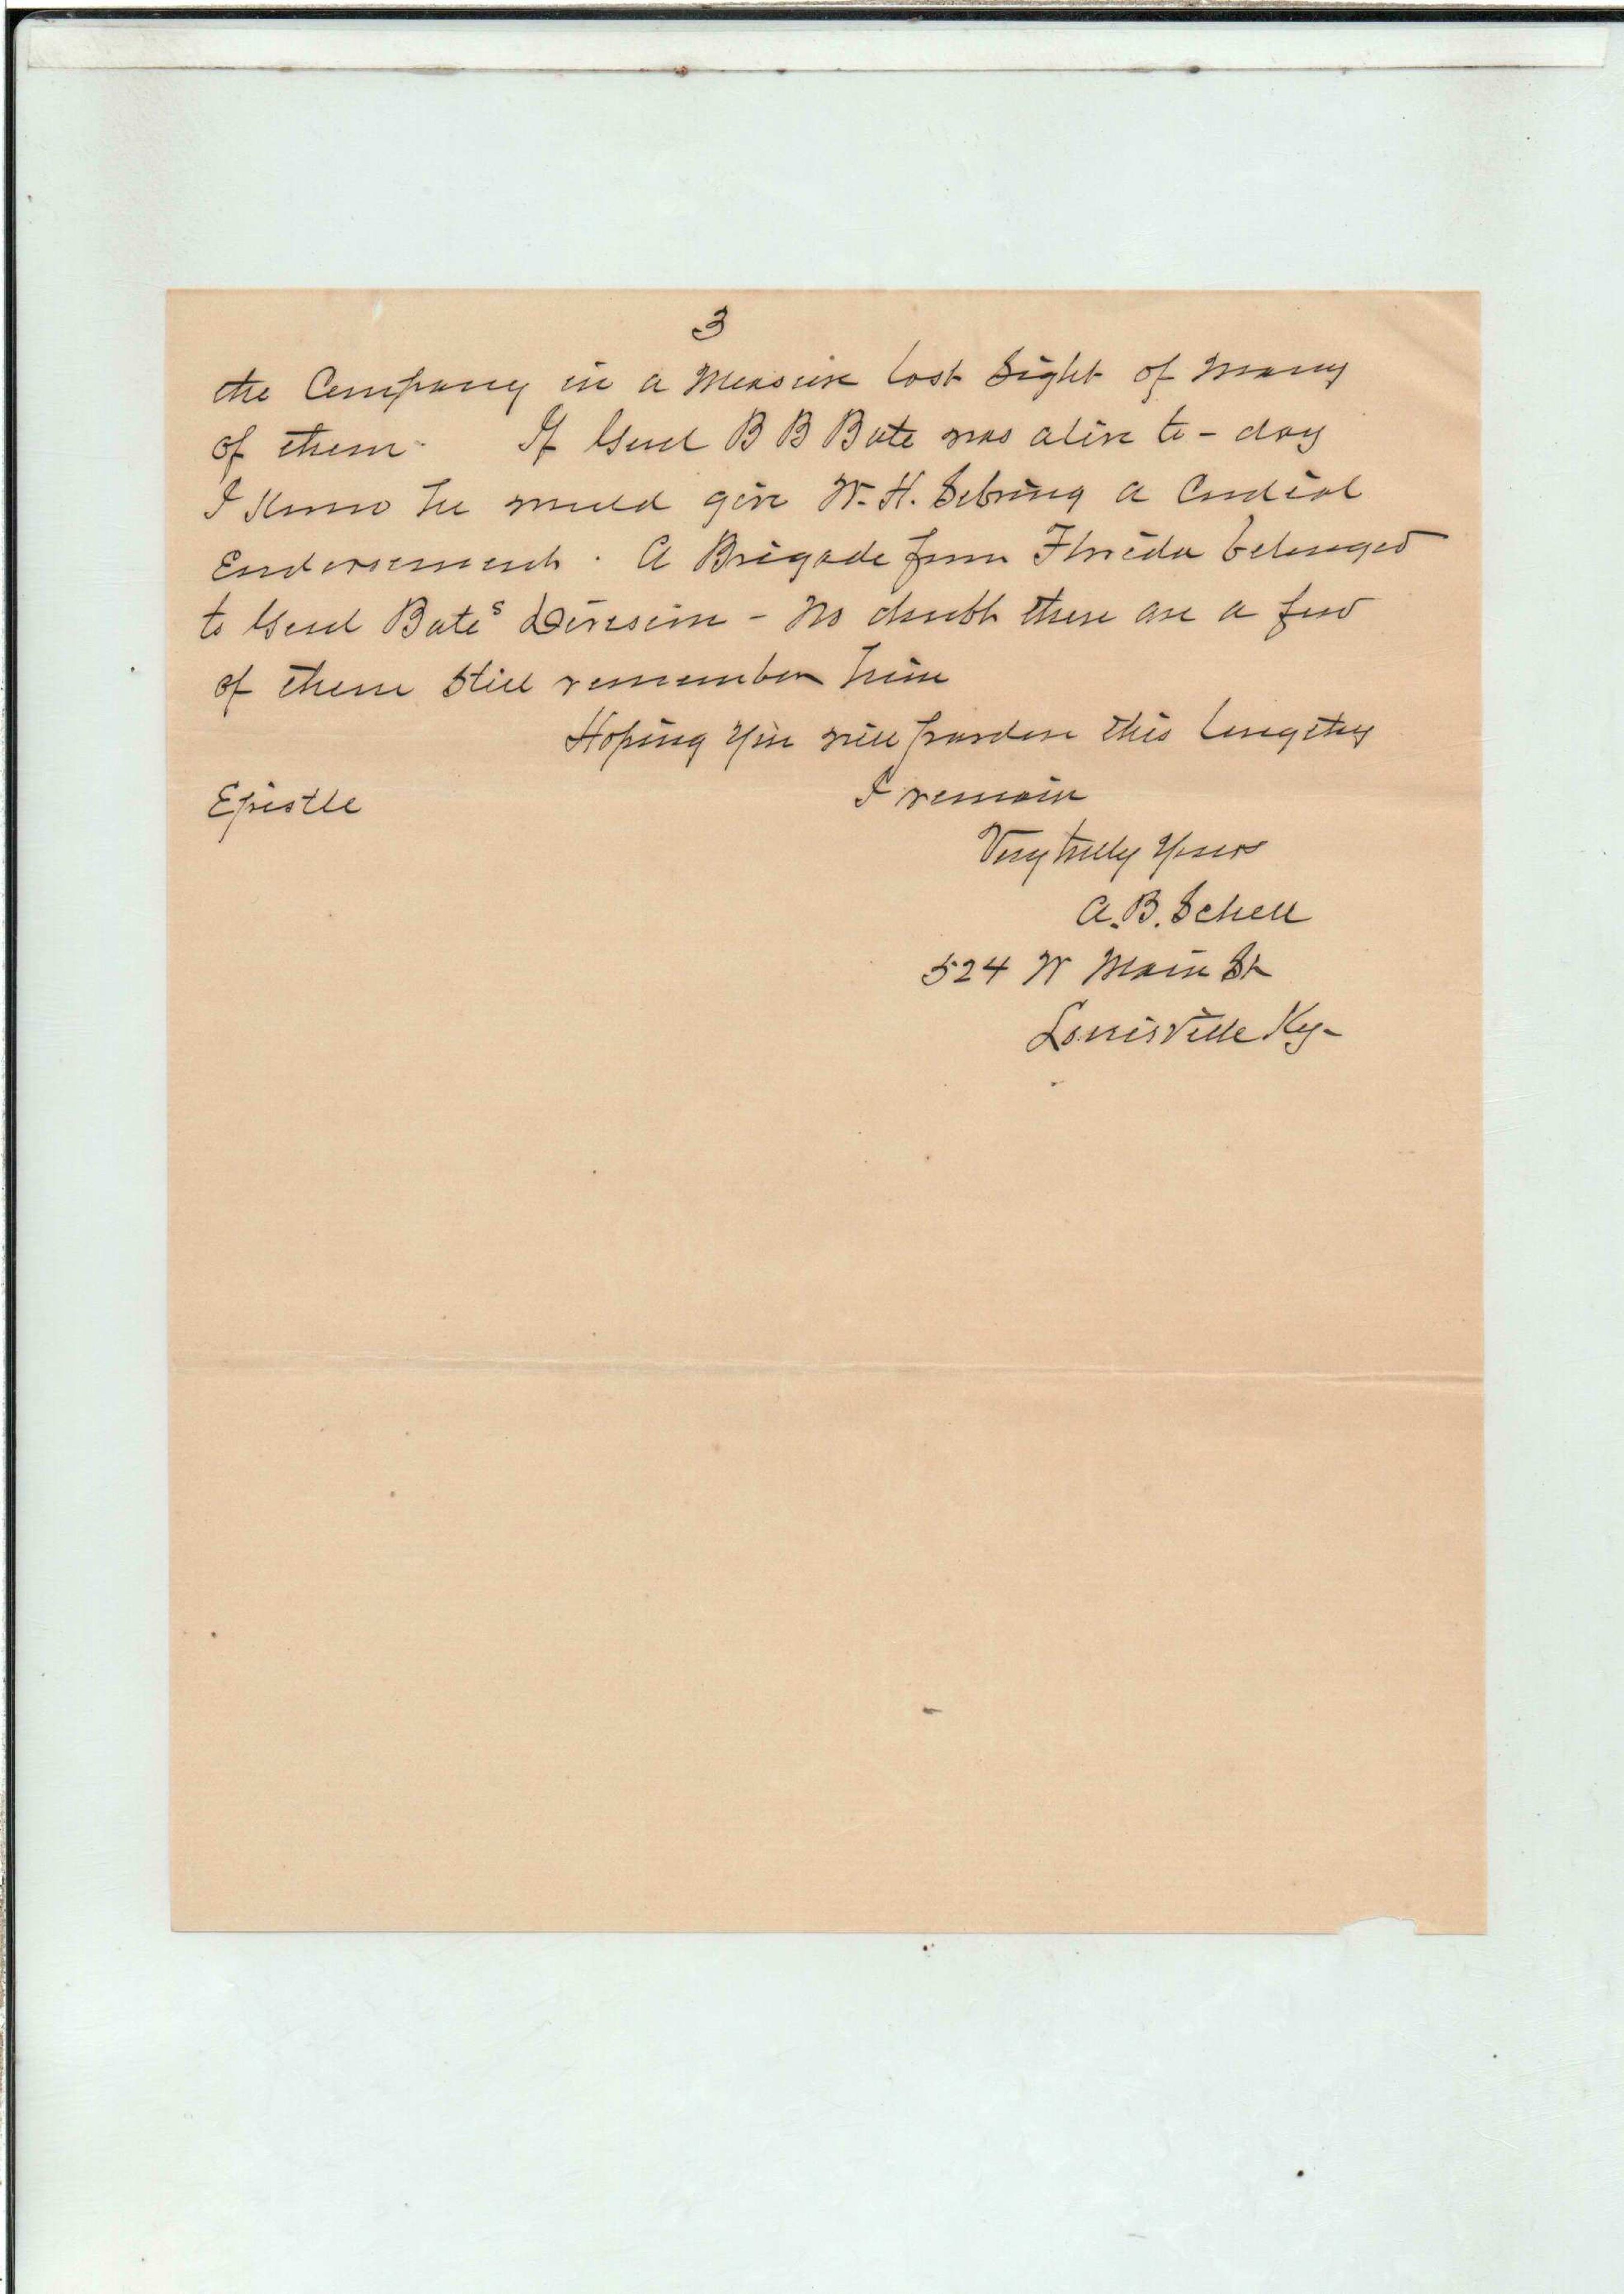 3
the Company in a Measure lost Sight of many
of them. If Genl B B Bate was alive to-day
I Know he would give W. H. Sebring a Cordial
Endorsement. A Brigade from Florida belonged
to Genl Bate's Division - No doubt there are a few
of them Still remember him
Hoping you will pardon this Lengthy
Epistle I remain
Very truly Yours
A. B. Schell
524 W Main St
Louisville Ky-